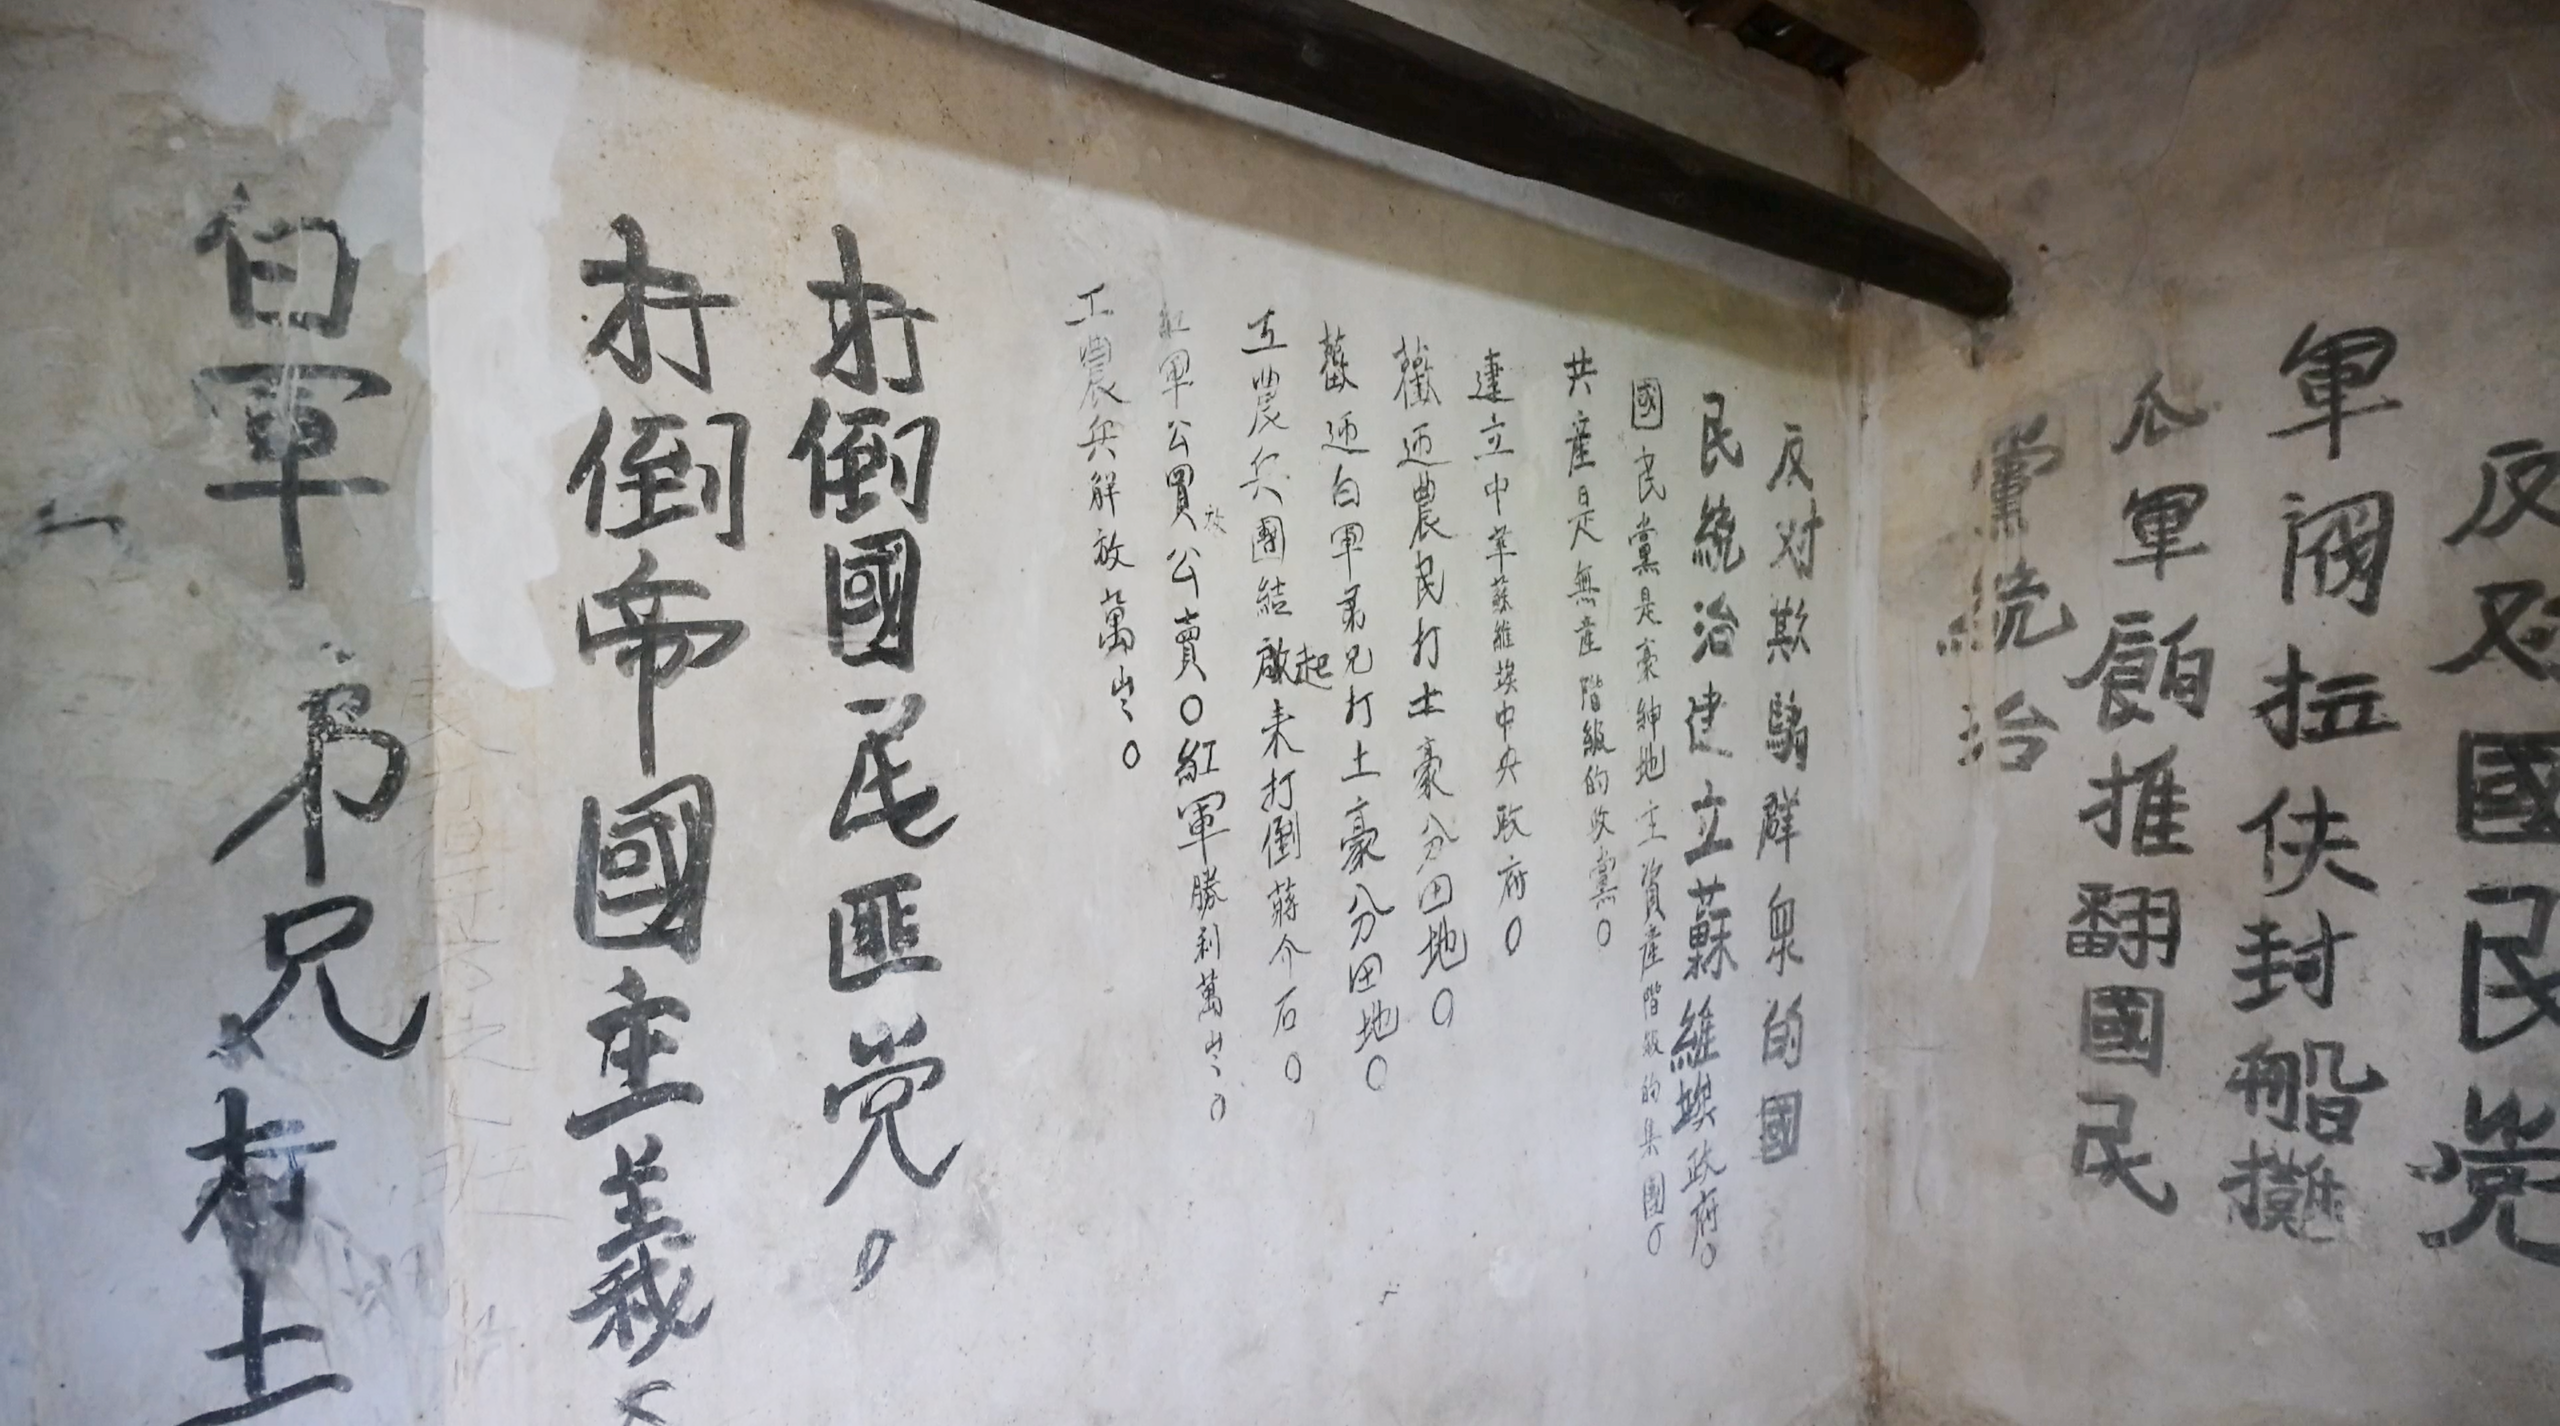 反对國民党
軍阀拉伕封船攤
軍餉推翻國民
黨統治
反对欺騙群眾的國
民統治建立蘇維埃政府。
國民黨是豪紳地主資產階級的集團。
共產是無產階級的政黨。
建立中華蘇維埃中央政府。
歡迎農民打土豪分田地。
歡迎白軍弟兄打土豪分田地。
工農兵團結起來打倒蔣介石。
紅軍公買公賣。紅軍勝利萬岁〻。
工農兵解放萬岁〻。
打倒國民匪党。
打倒帝國主義
白軍弟兄打土